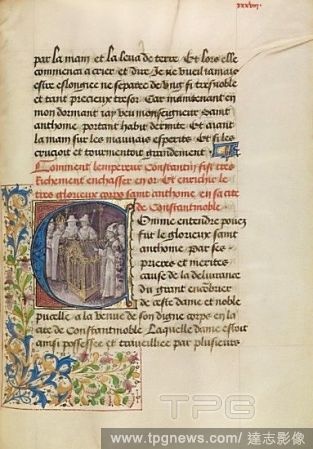 xxxvii.
par la main et la leva de terre Et lors elle
commenca a crier et dire Je ne vueil iamais
estre eslongnee ne separee de ung si tresnoble
et tant precieux tresor Car maintenant en
mon dormant iay veu monseigneur Saint
anthome portant habit dermite Et aiant
la main sur les mauvais esperits Et si les
crucioit et tourmentoit grandement
Comment lempereur Constantin fist tres
richement enchasser en or Et enrichir le
tres glorieux corps saint anthome en sa cite
de Constantinoble
Comme entendre pouez
fut le glorieux saint
anthome Par ses
prieres et merites
cause de la delivrance
du grant encombrier
de ceste dame et noble
pucelle a la venue de son digne corps en la
cite de Constantinoble Laquelle dame estoit
ainsi possessee et traveillee par plusieurs
TPG
www.tpgnews.com/達志影像